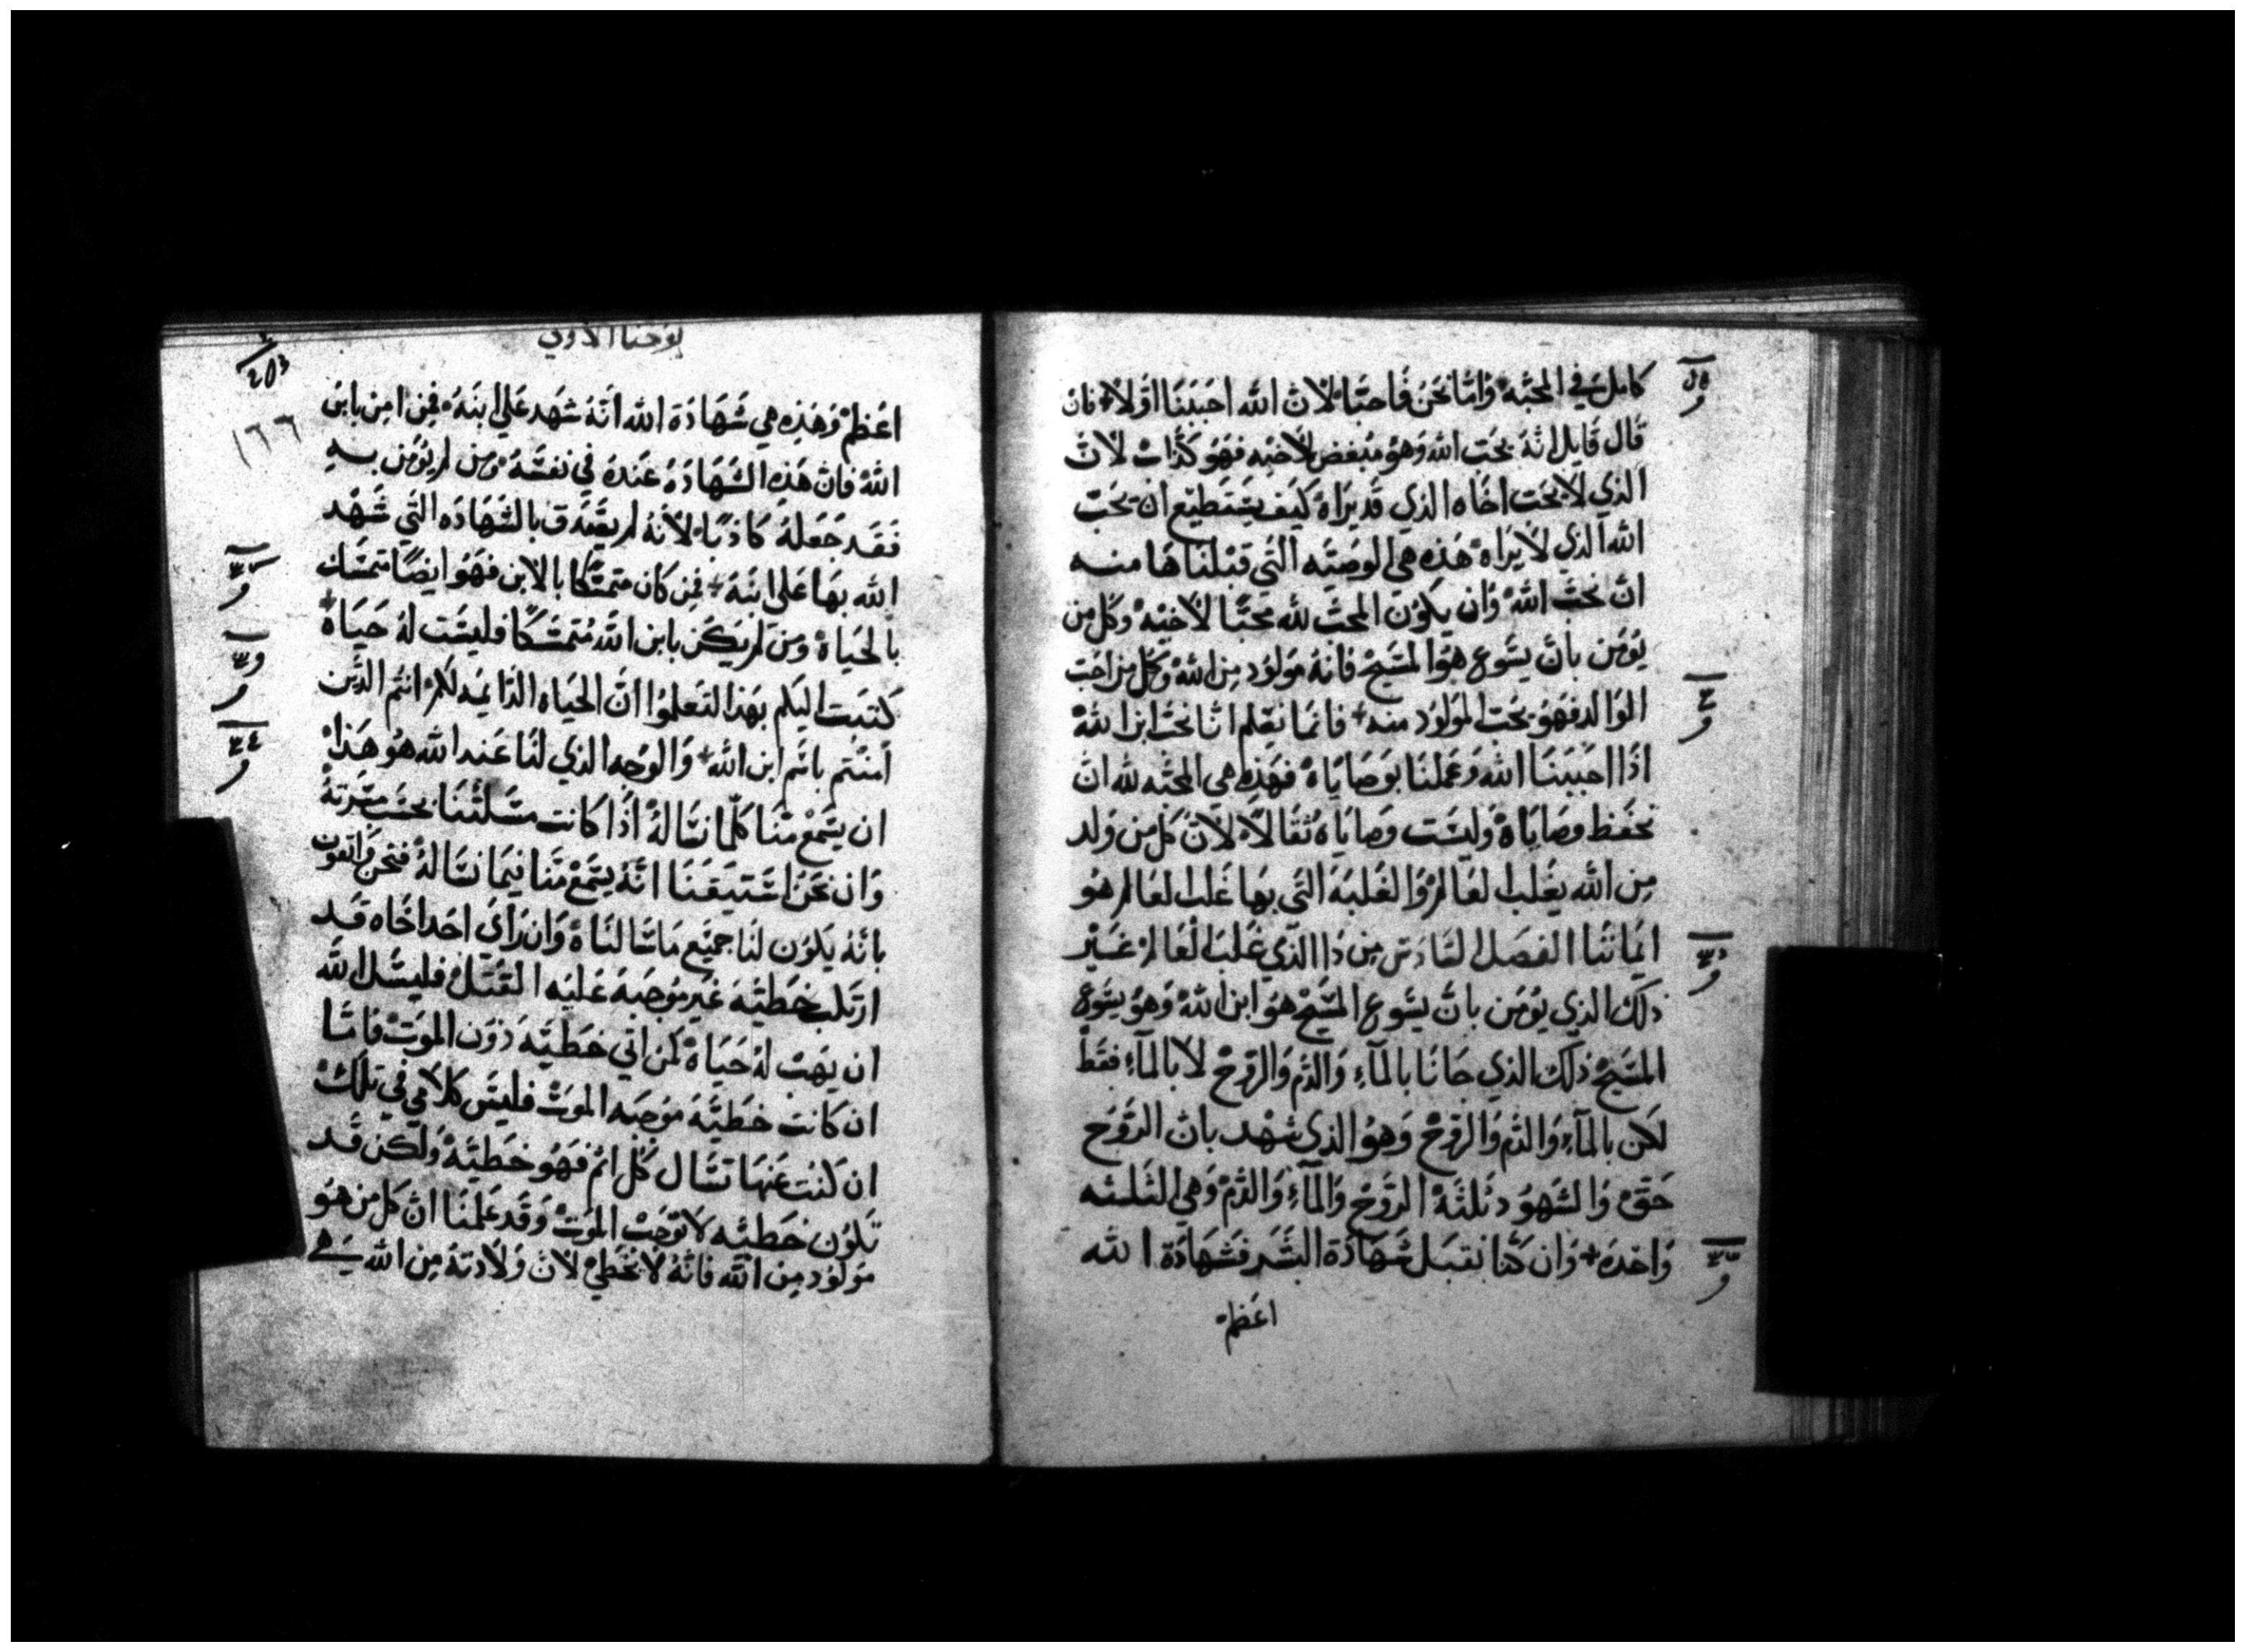 كامل في المحبه وَامّا نحَن فاحبّاء لان الله احبَبَنا اوّلاً فان
قال قايل انهُ يحَب الله وَهوَ مبغض لاخيه فهَو كذاب لان
الذي لا يحَب اخاه الذي قد يرَاه كيَف يستطيع ان يحَب
الله الذي لا يرَاه هَذه هي الوصَيه التي قبلناها منه
ان نحَب الله وَان يكوُن المحب لله محبّا لاخيه وكل من
يؤمَن بان يسَوع هوَ المسَيح فانهُ موَلود من الله وكل من احَب
الوَالد فهَو يحَب الموَلود منه فانما نعَلم اننا نحَب ابن الله
اذا احببَنا الله وَعَملنا بوصَاياه فهَذه هي المحبّه لله ان
نحفظ وصَاياه وَليسَت وصَاياه ثقالاً لان كل من وَلد
من الله يغلب العَالم وَالغلبَه التي بها غَلب العَالم هوَ
ايمَاننا الفصَل السَادس من ذا الذي غلب العَالم غيَر
ذلك الذي يؤمَن بان يسَوع المسَيح هوَ ابن الله وَهوَ يسَوع
المسَيح ذلك الذي جانا بالمآءِ وَالدَم وَالروح لا بالمآءِ فقط
لكن بالمآءِ وَالدم وَالروح وَهوَ الذي شهَد بان الروَح
حَق وَالشهوُد ثلثةُ الروَح وَالمآءِ وَالدم وَهي الثلثه
وَاحدَه وَان كنا نقبَل شهَادَة البشَر فشهَادَة الله
اعَظم
يوحنا الاولي
203
١٦٦
اعَظم وَهَذه هي شهَادَة الله انهُ شهَد عَلي ابنهُ فمن امن بابن
الله فان هَذه الشهَادَهُ عَندهُ في نفسَهُ وَمن لم يؤمَن بهِ
فقد جَعلهُ كاذبًا لانهُ لم يصَدق بالشهَادَه التي شهَد
الله بهَا عَلى ابنهُ فمن كان متمسّكا بالابن فهَو ايضًا متمسَك
بالحيَاه وَمن لم يكَن بابن الله مُتمسَكًا فليسَت لهُ حَيَاه
كتبَت اليكم بهَذا لتعَلموُا ان الحيَاه الدايمَه لكم انتم الذين
امنتم باسَم ابن الله وَالوَجه الذي لنا عَند الله هوَ هَذا
ان يسَمع منّا كلّما نسَالهُ اذا كانت مسَلتنا بحسَب مسَرتهُ
وَان نحَن استيَقنا انهُ يسَمع منّا فيمَا نسَالهُ فنحن وَاثقون
بانهُ يكوُن لنا جميَع مَا سَالناه وَان رَاي احَد اخاه قد
ارتكب خطيَه غير موُجبَه عَليَه القتل فليسَل الله
ان يهَب لهُ حَيَاه لمن اتي خطيَه دوُن الموَت فامّا
ان كانت خطيَه موُجبه الموَت فليسَ كلامي في تلك
ان كنت عَنها تسَال كل اثم فهَو خطيَه وَلكن قد
تكوُن خطيَه لا توُجَب الموَت وَقد عَلمنا ان كل من هوَ
موَلوُد من الله فانهُ لا يخَطي لان ولادَتهُ من الله هي